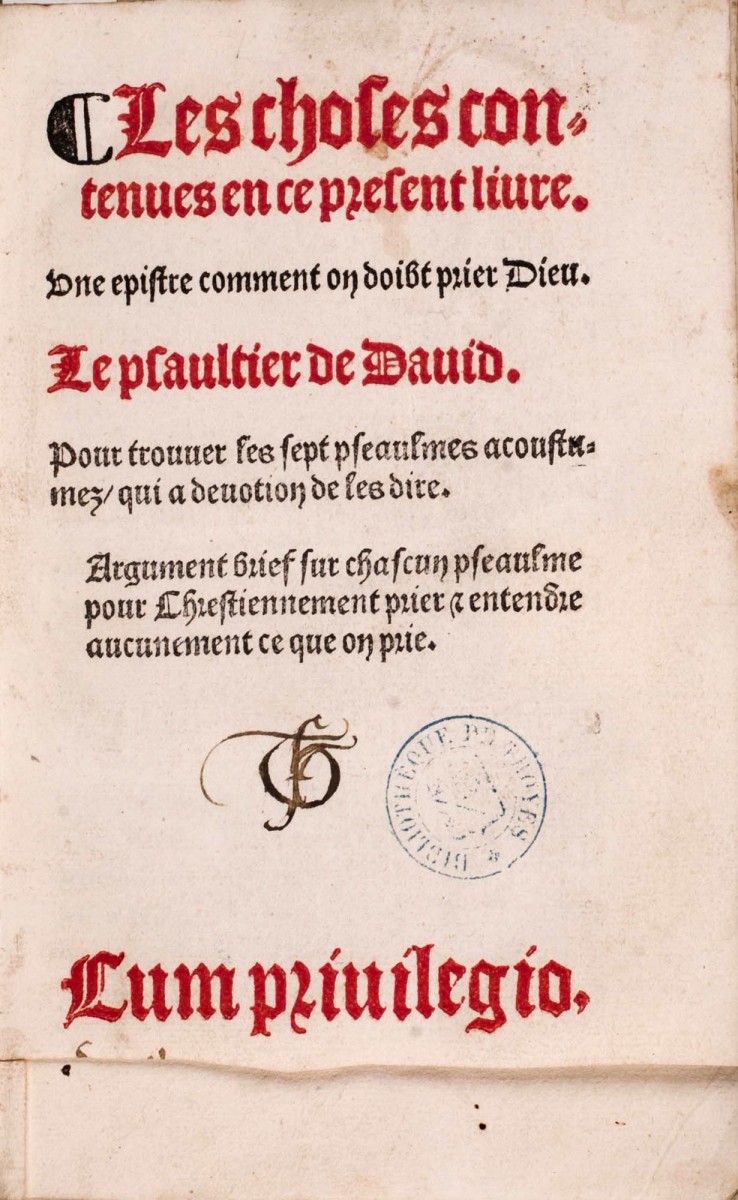 ¶ Les choses con-
tenues en ce present liure.
Vne epistre comment on doibt prier Dieu.
Le psaultier de Dauid.
Pour trouuer les sept pseaulmes acoustu-
mez/ qui a deuotion de les dire.
Argument brief sur chascun pseaulme
pour Chrestiennement prier & entendre
aucunement ce que on prie.
BIBLIOTHEQUE DE TROYES
Cum priuilegio.